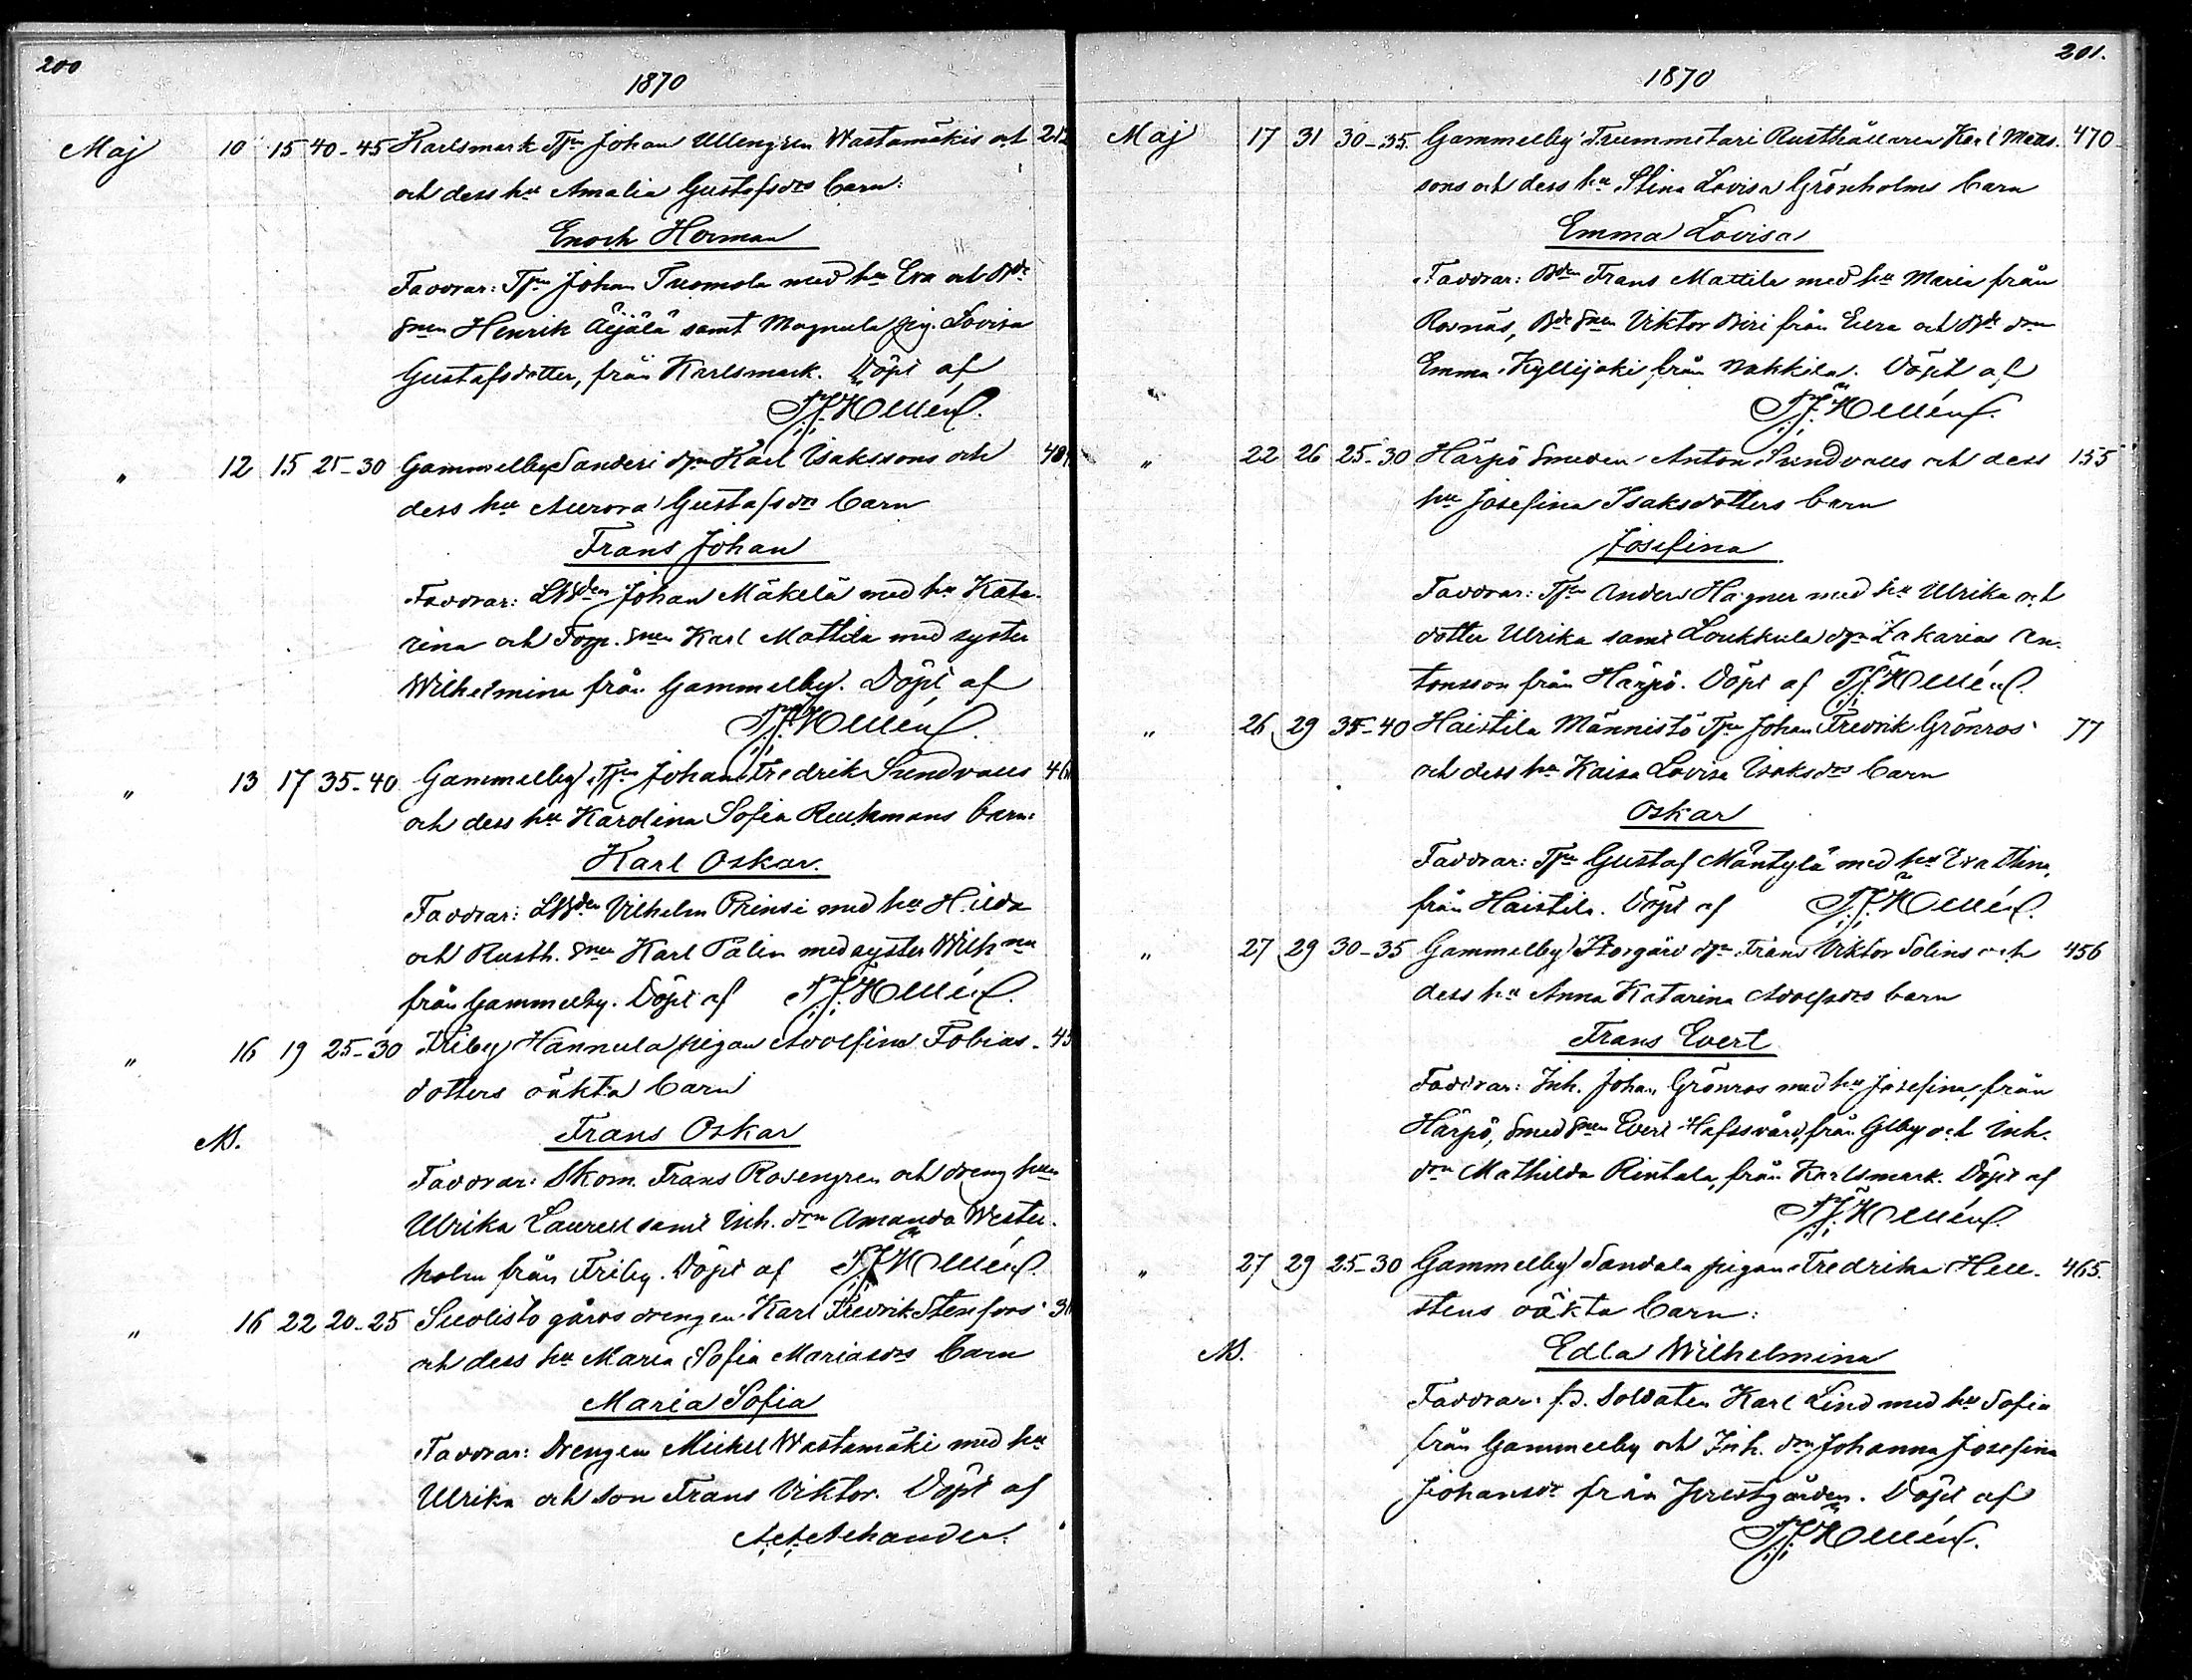 200
1870
Maj 10 15 40-45 Karlsmark Tpn Johan Ullengren Wastamäkis och 212
och dess hu Amalia Gustafsdrs barn:
Enoch Herman
Faddrar: Tpn Johan Tuomola med hu Eva och Bde
snen Henrik Äijälä samt Magnula pig. Lovisa
Gustafsdotter, från Karlsmark. Döpt af
T.J. Hellén.
" 12 15 25-30 Gammelby Sanderi dgn Karl Isakssons och
dess hu Aurora Gustafsdrs barn
Frans Johan
Faddrar: LBden Johan Mäkelä med hu Kata-
rina och Torp. snen Karl Mattila med syster
Wilhelmina från Gammelby. Döpt af
T.J. Hellén.
" 13 17 35-40 Gammelby Tpn Johan Fredrik Sundvalls 46
och dess hu Karolina Sofia Ruckmans barn:
Karl Oskar.
Faddrar: LBden Vilhelm Prinsi med hu Hilda
och Rusth. snen Karl Palin med syster Wilhna
från Gammelby. Döpt af T.J. Hellén.
" 16 19 25-30 Friby Hannula pigan Adolfina Tobias- 43
dotters oäkta barn
NB. Frans Oskar
Faddrar: Skom. Frans Rosengren och dreng hun
Ulrika Laurell samt Inh. drn Amanda Wester-
holm från Friby. Döpt af T.J. Hellén.
" 16 22 20-25 Suolisto gårds drengen Karl Fredrik Stenfors 3
och dess hu Maria Sofia Mariasdrs barn
Maria Sofia
Faddrar: Drengen Mickel Wastamäki med hu
Ulrika och son Frans Viktor. Döpt af
201.
1870
Maj 17 31 30-35. Gammelby Trummetari Rusthållaren Karl Matts- 470
sons och dess hu Stina Lovisa Grönholms barn
Emma Lovisa
Faddrar: Bden Frans Mattila med hu Maria från
Rosnäs, Bde snen Viktor Biri från Eura och Bde drn
Emma Kyllijoki från Nakkila. Döpt af
T.J. Hellén.
" 22 26 25-30 Härpö Smeden Anton Sundvalls och dess 155
hu Josefina Isaksdotters barn
Josefina
Faddrar: Tpn Anders Hagner med hu Ulrika och
dotter Ulrika samt Loukkula dgn Zakarias An-
tonsson från Härpö. Döpt af T.J. Hellén.
" 26 29 35-40 Haistila Männistö Tpn Johan Fredrik Grönros 77
och dess hu Kaisa Lovisa Isaksdrs barn
Oskar
Faddrar: Tpn Gustaf Mäntylä med hu Eva Stina,
från Haistila. Döpt af T.J. Hellén.
" 27 29 30-35 Gammelby Storgård dgn Frans Viktor Solins och 456
dess hu Anna Katarina Adolfsdrs barn
Frans Evert
Faddrar: Inh. Johan Grönros med hu Josefina, från
Härpö, Smed snen Evert Hafssvärd, från Glby och Inh.
drn Mathilda Rintala, från Karlsmark. Döpt af
T.J. Hellén.
" 27 29 25-30 Gammelby Sandala pigan Fredrika Hell- 465.
stens oäkta barn:
NB. Edla Wilhelmina
Faddrar: f.d. Soldaten Karl Lind med hu Sofia
från Gammelby och Inh. drn Johanna Josefina
Johansdr från Prestgården. Döpt af
T.J. Hellén.